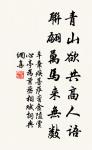 青山欲共高人語
聯翩萬馬來無數
辛棄疾菩薩蠻金陵賞
心亭為葉丞相賦詞典
網